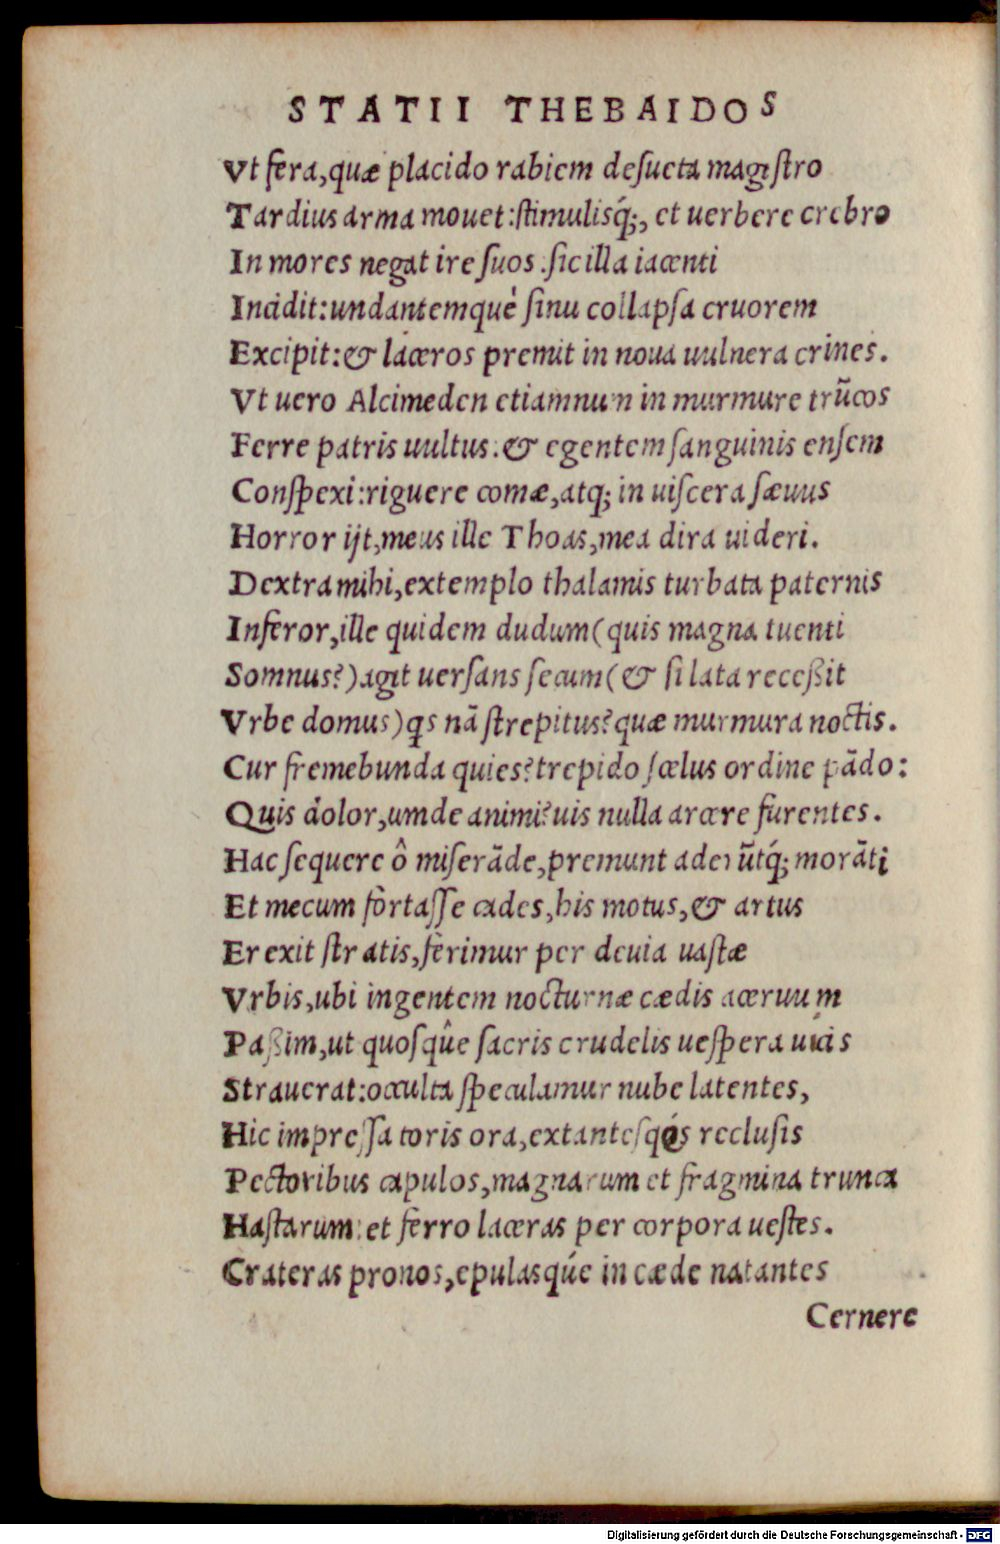 STATII THEBAIDOS
Vt fera,quæ placido rabiem deſueta magiſtro
Tardius arma mouet:ſtimulisq́;, et uerbere crebro
In mores negat ire ſuos.ſic illa iacenti
Incidit:undantemquè ſinu collapſa cruorem
Excipit:& laceros premit in noua uulnera crines.
Vt uero Alcimeden etiamnum in murmure trũcos
Ferre patris uultus.& egentem ſanguinis enſem
Conſpexi:riguere comæ,atq; in uiſcera ſæuus
Horror ijt,meus ille Thoas,mea dira uideri.
Dextra mihi,extemplo thalamis turbata paternis
Inferor,ille quidem dudum(quis magna tuenti
Somnus?)agit uerſans ſecum(& ſi lata receßit
Vrbe domus)qs nã ſtrepitus?quæ murmura noctis.
Cur fremebunda quies?trepido ſcelus ordine pãdo:
Quis dolor,unde animi?uis nulla arcere furentes.
Hac ſequere ô miſerãde,premunt aderũtq́; morãti
Et mecum fortaſſe cades,his motus,& artus
Erexit ſtratis,ferimur per deuia uaſtæ
Vrbis,ubi ingentem nocturnæ cædis aceruum
Paßim,ut quoſqûe ſacris crudelis ueſpera uicis
Strauerat:occulta ſpeculamur nube latentes,
Hic impreſſa toris ora,extanteſqués recluſis
Pectoribus capulos,magnarum et fragmina trunca
Haſtarum:et ferro laceras per corpora ueſtes.
Crateras pronos,epulasqúe in cæde natantes
Cernere
Digitalisierung gefördert durch die Deutsche Forschungsgemeinschaft - DFG